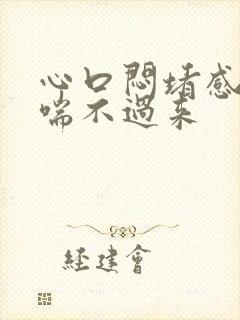 心口悶堵感
喘不過来
経建會